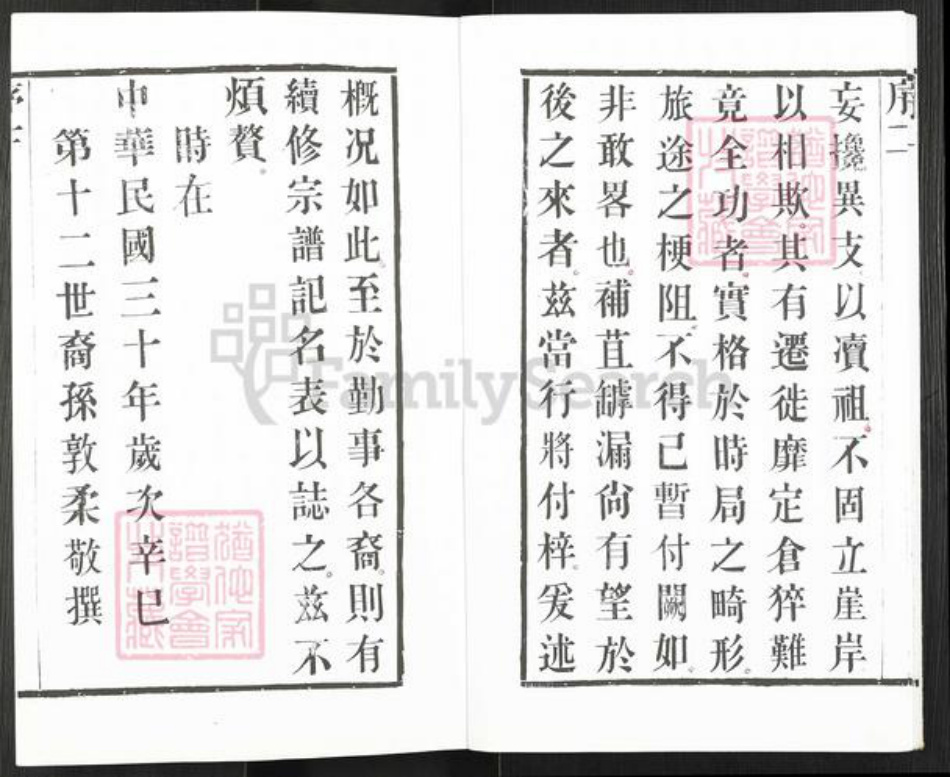 序二
妄攙異支以凟祖不固立崖岸
以相欺其有遷徙靡定倉猝難
竟全功者實格於時局之畸形
旅途之梗阻不得已暫付闕如
非敢畧也補苴罅漏尙有望於
後之來者茲當行將付梓爰述
概况如此至於勤事各裔則有
續修宗譜記名表以誌之茲不
煩贅
時在
中華民國三十年歲次辛巳
第十二世裔孫敦柔敬撰
FamilySearch